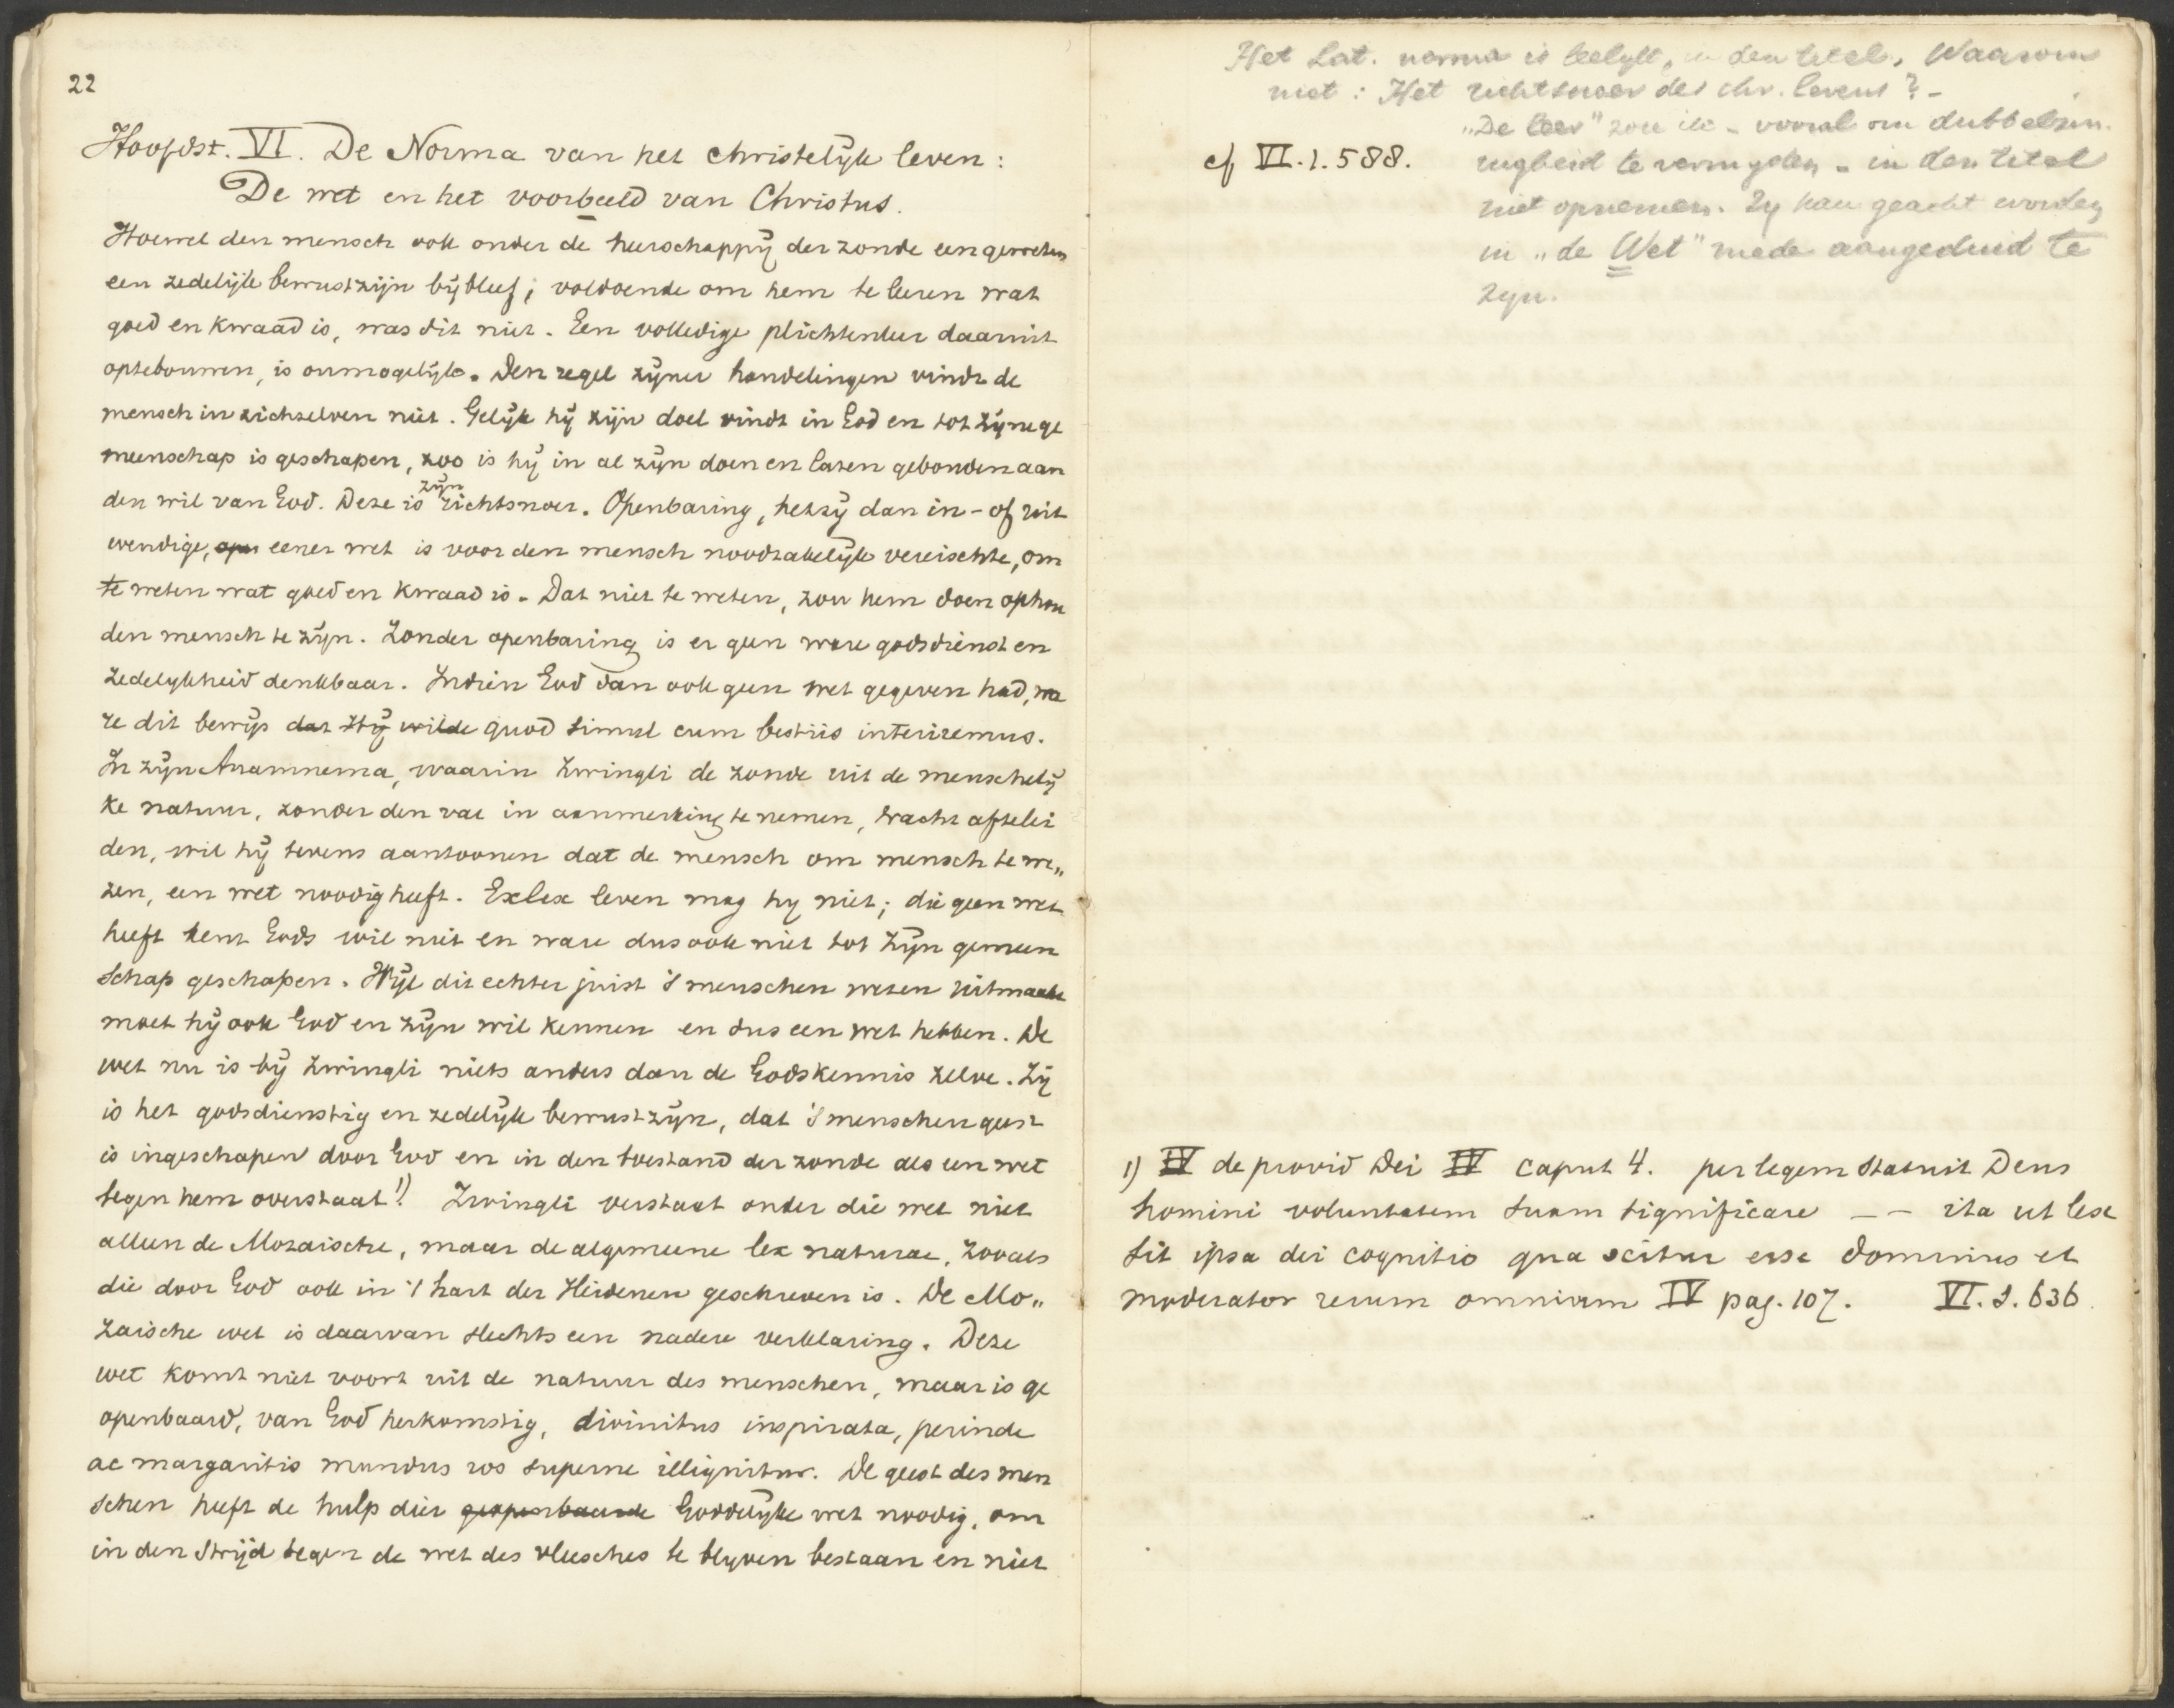 22
Hoofdst. VI. De Norma van het christelijk leven:
De wet en het voorbeeld van Christus.
Hoewel den mensch ook onder de heerschappij der zonde een geweten
een zedelijk bewustzijn bijbleef; voldoende om hem te leeren wat
goed en kwaad is, was dit niet. Een volledige plichtenleer daaruit
optebouwen, is onmogelijk. Den regel zijner handelingen vindt de
mensch in zichzelven niet. Gelijk hij zijn doel vindt in God en tot zijne ge
meenschap is geschapen, zoo is hij in al zijn doen en laten gebonden aan
den wil van God. Deze is zijn richtsnoer. Openbaring, hetzij dan in- of uit
wendige, eener wet is voor den mensch noodzakelijk vereischte, om
te weten wat goed en kwaad is. Dat niet te weten, zou hem doen ophou
den mensch te zijn. Zonder openbaring is er geen ware godsdienst en
zedelykheid denkbaar. Indien God dan ook geen wet gegeven had, wa
re dit bewijs dat Hij wilde quod simul cum bestiis interiremus.
In zijn Anamnema, waarin Zwingli de zonde uit de menschelij
ke natuur, zonder den val in aanmerking te nemen, tracht afteleí
den, wil hij tevens aantoonen dat de mensch om mensch te we„
zen, een wet noodig heeft. Exlex leven mag hy niet; die geen wet
heeft kent Gods wil niet en ware dus ook niet tot Zijn gemeen
schap geschapen. Wijl dit echter juist 's menschen wezen uitmaakt
moet hij ook God en zijn wil kennen en dus een wet hebben. De
wet nu is bij Zwingli niets anders dan de Godskennis zelve. Zij
is het godsdienstig en zedelijk bewustzijn, dat 's menschen geest
is ingeschapen door God en in den toestand der zonde als een wet
tegen hem overstaat.1) Zwingli verstaat onder die wet niet
alleen de Mozaische, maar de algemeene lex naturae, zooals
die door God ook in 't hart der Heidenen geschreven is. De Mo„
zaische wet is daarvan slechts een nadere verklaring. Deze
wet komt niet voort uit de natuur des menschen, maar is ge
openbaard, van God herkomstig, divinitus inspirata, perinde
ac margaritis mundus ros superne illignitur. De geest des men
schen heeft de hulp dier geopenbaarde Goddelijke wet noodig, om
in den strijd tegen de wet des vleesches te blyven bestaan en niet
Het Lat. norma is leelyk, in den titel. Waarom
niet: Het richtsnoer des chr. levens? -
"De leer" zou ik - vooral om dubbelzin.
cf VI.1.588.
nigheid te vermyden - in den titel
niet opnemen. Zy kan geacht worden
in "de Wet" mede aangeduid te
zyn.
1) IV de provid Dei IV caput 4. per legem statuit Deus
homini voluntatem suam significare - - ita ut lex
sit ipsa dei cognitio qua scitur esse dominus et
moderator rerum omnium IV pag. 107. VI.1.636.